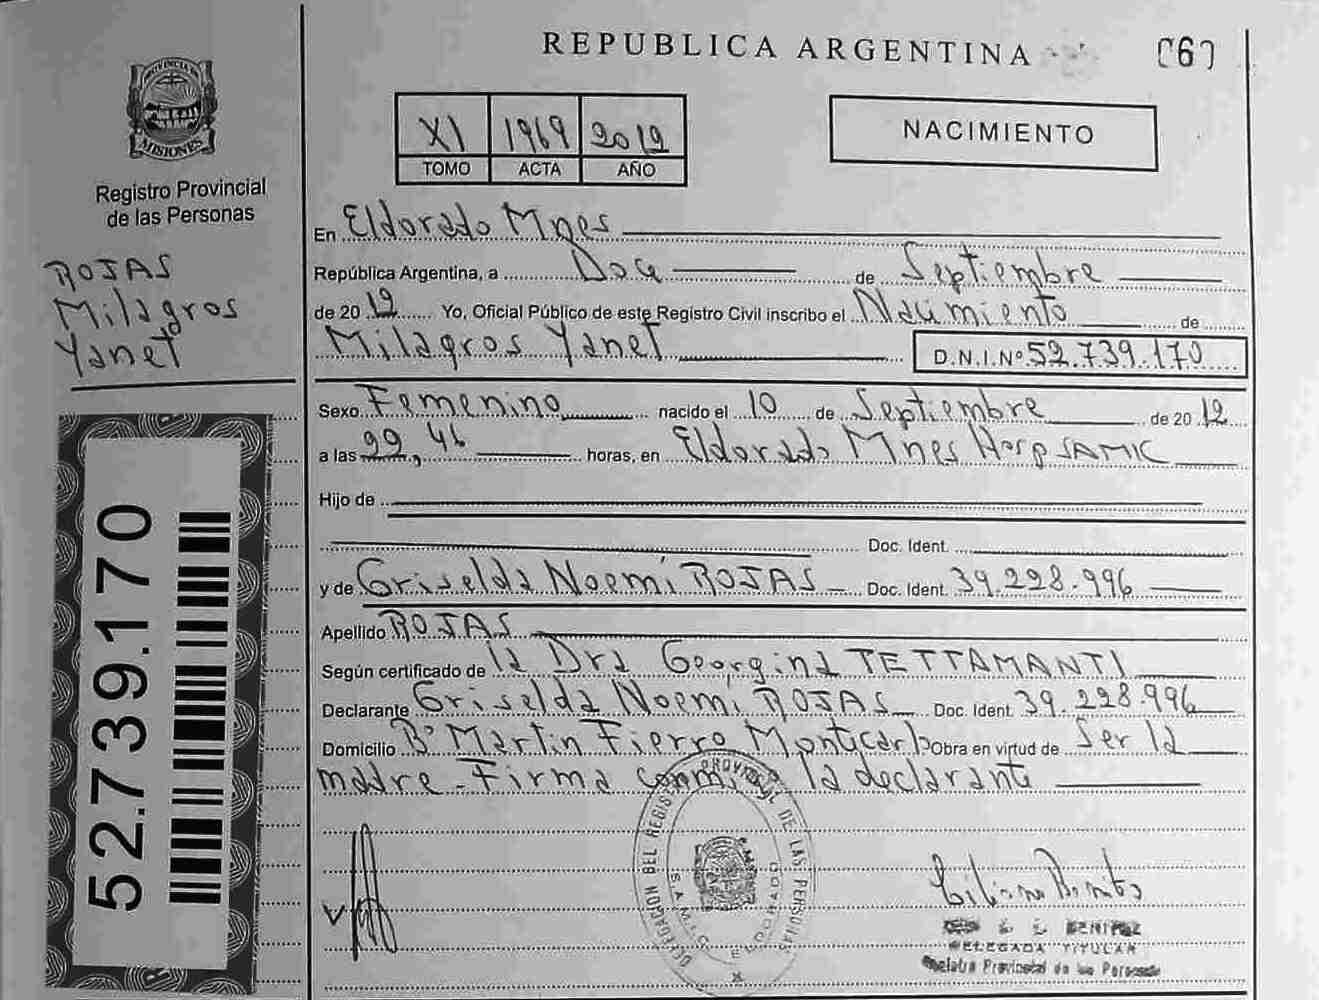 REPUBLICA ARGENTINA
PROVINCIA DE
MISIONES
Registro Provincial
de las Personas
ROJAS
Milagros
Yanet
52.739.170
XI 1969 2012
TOMO ACTA AÑO
NACIMIENTO
En Eldorado Mnes
República Argentina, a Doce de Septiembre
de 2012 Yo, Oficial Público de este Registro Civil inscribo el Nacimiento de
Milagros Yanet D.N.I.Nº 52.739.170
Sexo Femenino nacido el 10 de Septiembre de 2012
a las 22,46 horas, en Eldorado Mnes Hosp SAMIC
Hijo de
Doc. Ident.
y de Griselda Noemí ROJAS Doc. Ident. 39.228.996
Apellido ROJAS
Según certificado de la Dra Georgina TETTAMANTI
Declarante Griselda Noemí ROJAS Doc. Ident. 39.228.996
Domicilio Bº Martin Fierro Montecarlo Obra en virtud de Ser la
madre - Firma conmigo la declarante
DELEGACION DEL REGISTRO PROVINCIAL DE LAS PERSONAS
SAMIC ELDORADO
BENITEZ
DELEGADA TITULAR
Provincial de las Personas